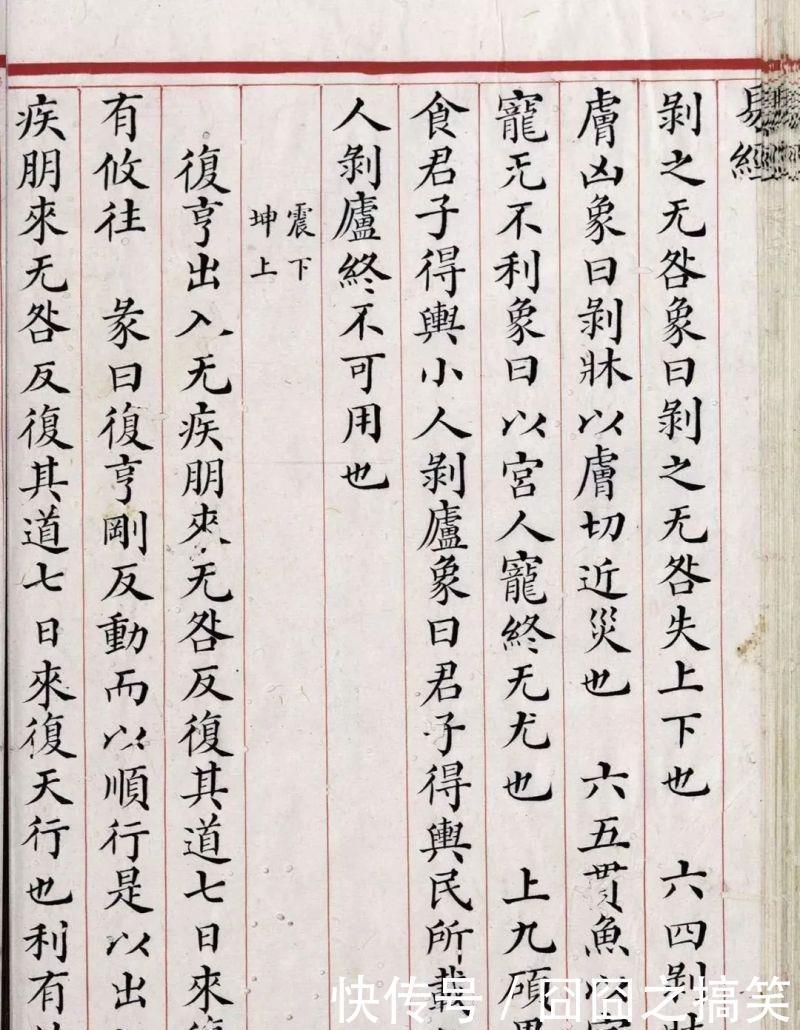 易經
剝之无咎象曰剝之无咎失上下也 六四剝牀
膚凶象曰剝牀以膚切近災也 六五貫魚以宮
寵无不利象曰以宮人寵終无尤也 上九碩果
食君子得輿小人剝廬象曰君子得輿民所載
人剝廬終不可用也
震下
坤上
復亨出入无疾朋來无咎反復其道七日來復
有攸往 彖曰復亨剛反動而以順行是以出
疾朋來无咎反復其道七日來復天行也利有
快传号 / 囧囧之搞笑